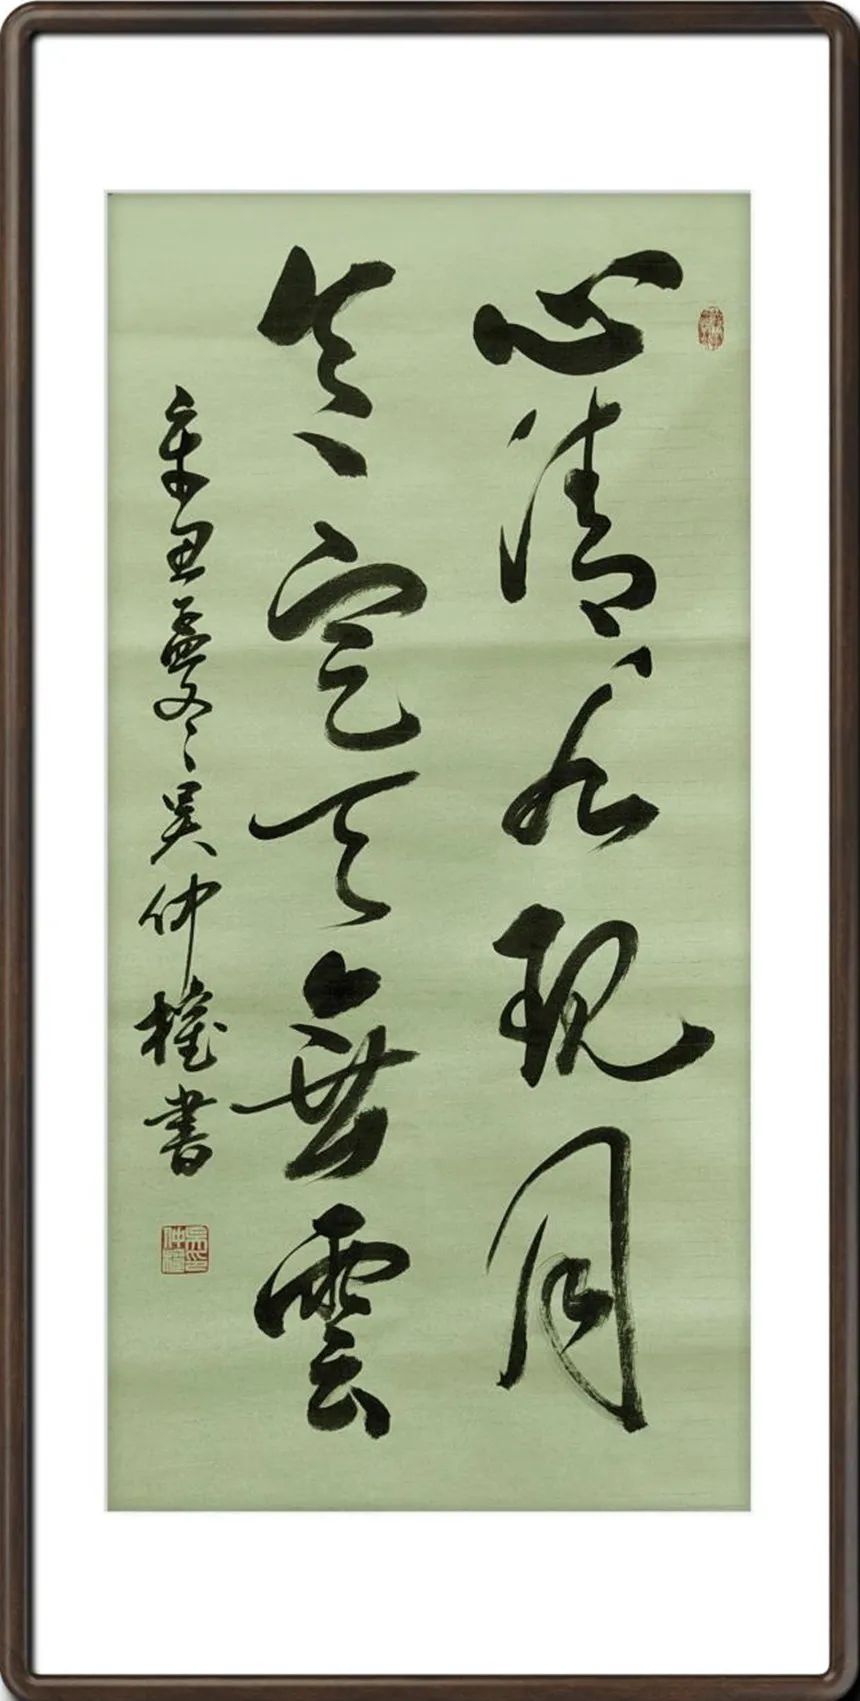 心清水現月
意定天無雲
辛丑孟冬吴仲權書